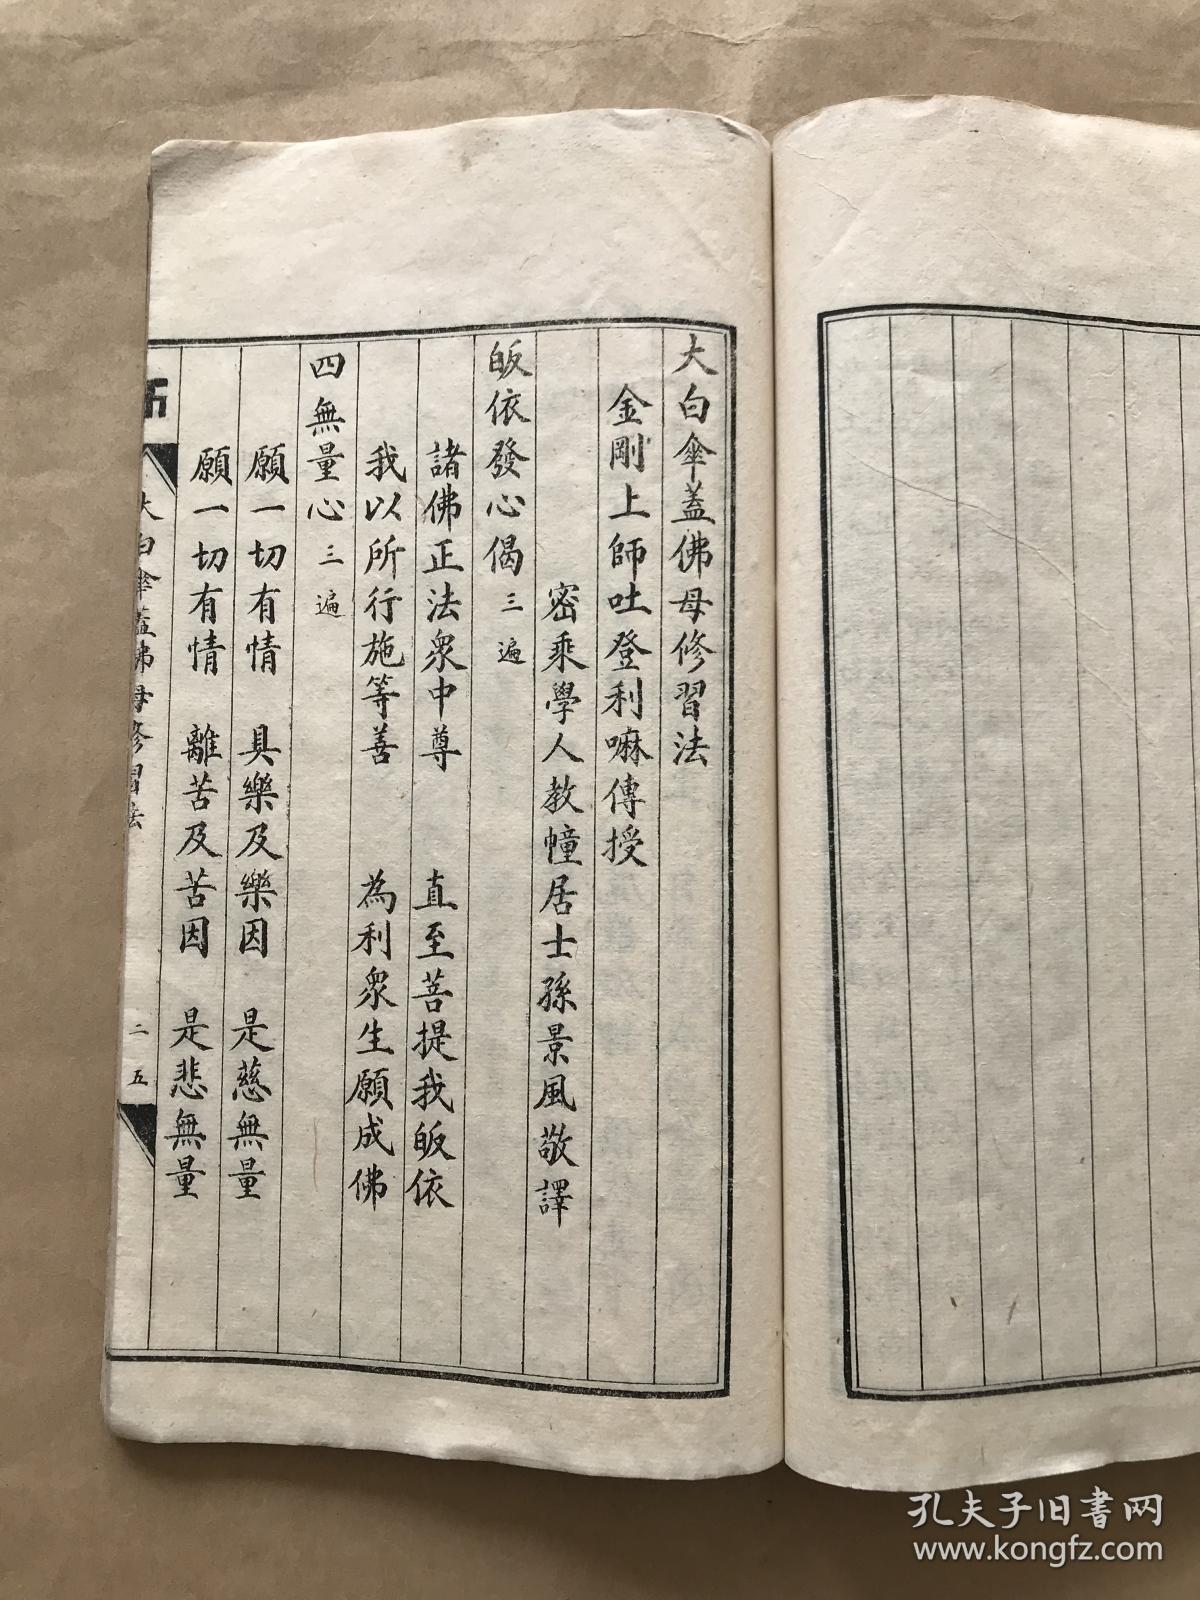 大白傘蓋佛母修習法
金剛上師吐登利嘛傳授
密乘學人教幢居士孫景風敬譯
皈依發心偈三遍
諸佛正法衆中尊　直至菩提我皈依
我以所行施等善　為利衆生願成佛
四無量心三遍
願一切有情　具樂及樂因　是慈無量
願一切有情　離苦及苦因　是悲無量
大白傘蓋佛母修習法
二五
孔夫子旧书网
www.kongfz.com